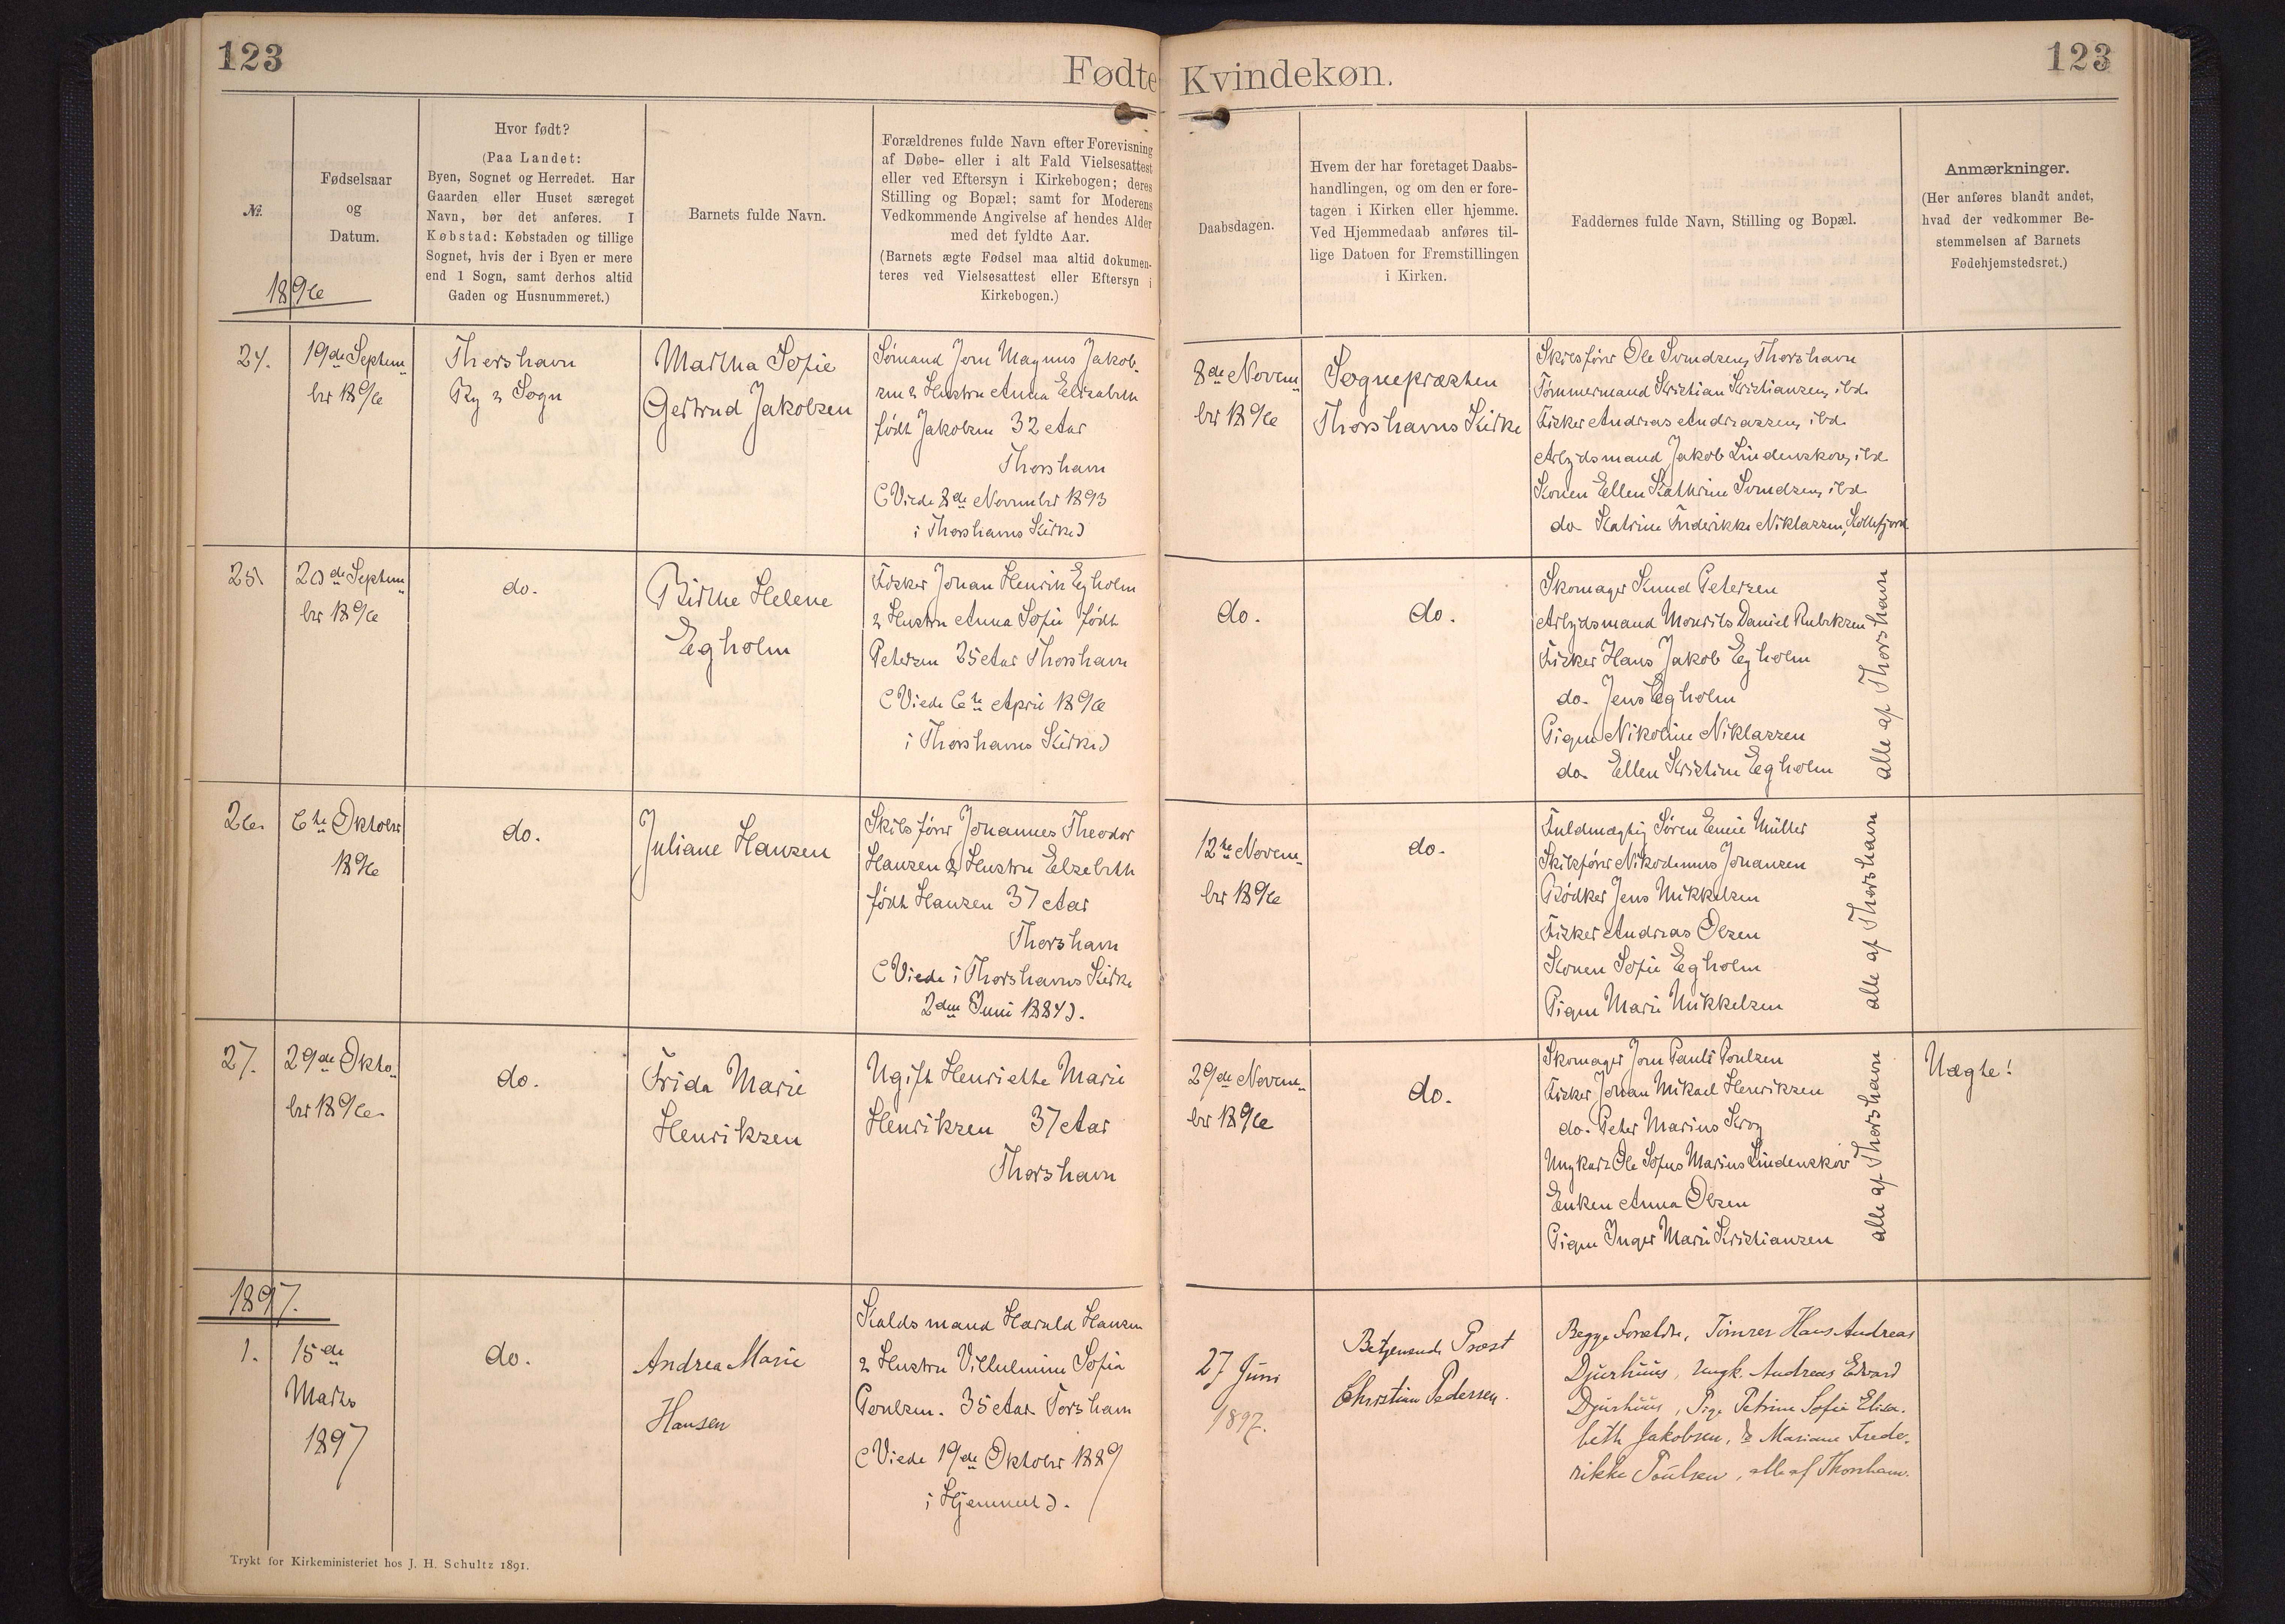 123
Fødte Kvindekøn.
123
№.
Fødselsaar
og
Datum.
1896
Hvor født?
(Paa Landet:
Byen, Sognet og Herredet. Har
Gaarden eller Huset særeget
Navn, bør det anføres. I
Købstad: Købstaden og tillige
Sognet, hvis der i Byen er mere
end 1 Sogn, samt derhos altid
Gaden og Husnummeret.)
Barnets fulde Navn.
Forældrenes fulde Navn efter Forevisning
af Døbe- eller i alt Fald Vielsesattest
eller ved Eftersyn i Kirkebogen; deres
Stilling og Bopæl; samt for Moderens
Vedkommende Angivelse af hendes Alder
med det fyldte Aar.
(Barnets ægte Fødsel maa altid dokumen-
teres ved Vielsesattest eller Eftersyn i
Kirkebogen.)
Daabsdagen.
Hvem der har foretaget Daabs-
handlingen, og om den er fore-
tagen i Kirken eller hjemme.
Ved Hjemmedaab anføres til-
lige Datoen for Fremstillingen
i Kirken.
Faddernes fulde Navn, Stilling og Bopæl.
Anmærkninger.
(Her anføres blandt andet,
hvad der vedkommer Be-
stemmelsen af Barnets
Fødehjemstedsret.)
24.
19de Septem
ber 1896
Thorshavn
By & Sogn
Martha Sofie
Gertrud Jakobsen
Sømand Jorn Magnus Jakob-
sen & Hustru Anna Elisabeth
født Jakobsen 32 Aar
Thorshavn
(Viede 8de November 1893
i Thorshavns Kirke)
8de Novem
ber 1896
Sognepræsten
Thorshavns Kirke
Skibsfører Ole Svendsen, Thorshavn
Tømmermand Kristian Kristiansen, ibd.
Fisker Andreas Andreassen, ibd.
Arbejdsmand Jakob Lindenskov, ibd.
Konen Ellen Kathrine Svendsen, ibd.
do. Katrine Frederikke Niklassen, Kollefjord
25.
20de Septem
ber 1896
do.
Birthe Helene
Egholm
Fisker Johan Henrik Egholm
& Hustru Anna Sofie født
Petersen 25 Aar Thorshavn
(Viede 6te April 1896
i Thorshavns Kirke)
do.
do.
Skomager Knud Petersen
Arbejdsmand Mourits Daniel Rubeksen
Fisker Hans Jakob Egholm
do. Jens Egholm
Pigen Nikoline Niklassen
do. Ellen Kristine Egholm
alle af Thorshavn
26.
6te Oktober
1896
do.
Juliane Hansen
Skibsfører Johannes Theodor
Hansen & Hustru Elsebeth
født Hansen 37 Aar
Thorshavn
(Viede i Thorshavns Kirke
2den Juni 1884).
12te Novem-
ber 1896
do.
Fuldmægtig Søren Emil Müller
Skibsfører Nikodemus Johansen
Bødker Jens Mikkelsen
Fisker Andreas Olsen
Konen Sofie Egholm
Pigen Marie Mikkelsen
alle af Thorshavn
27.
29de Okto
ber 1896.
do.
Frida Marie
Henriksen
Ugift Henriette Marie
Henriksen 37 Aar
Thorshavn
29de Novem-
ber 1896
do.
Skomager Jorn Pauli Poulsen
Fisker Johan Mikael Henriksen
do. Peter Marius Krog
Ungkarl Ole Sofus Marius Lindenskov
Enken Anna Olsen
Pigen Inger Marie Kristiansen
alle af Thorshavn
Uægte!
1897.
1.
15de
Marts
1897
do.
Andrea Marie
Hansen
Kaldsmand Harald Hansen
& Hustru Villielmine Sofia
Poulsen. 35 Aar Torshavn
(Viede 19de Oktober 1889
i Hjemmet).
27 Juni
1897.
Betjenende Provst
Christian Pedersen.
Begge Forældre, Tømrer Hans Andreas
Djurhuus, Ungk. Andreas Edvard
Djurhuus, Pige Petrine Sofie Elisa-
beth Jakobsen, do Mariane Frede-
rikke Poulsen, alle af Thorshavn.
Trykt for Kirkeministeriet hos J. H. Schultz 1891.